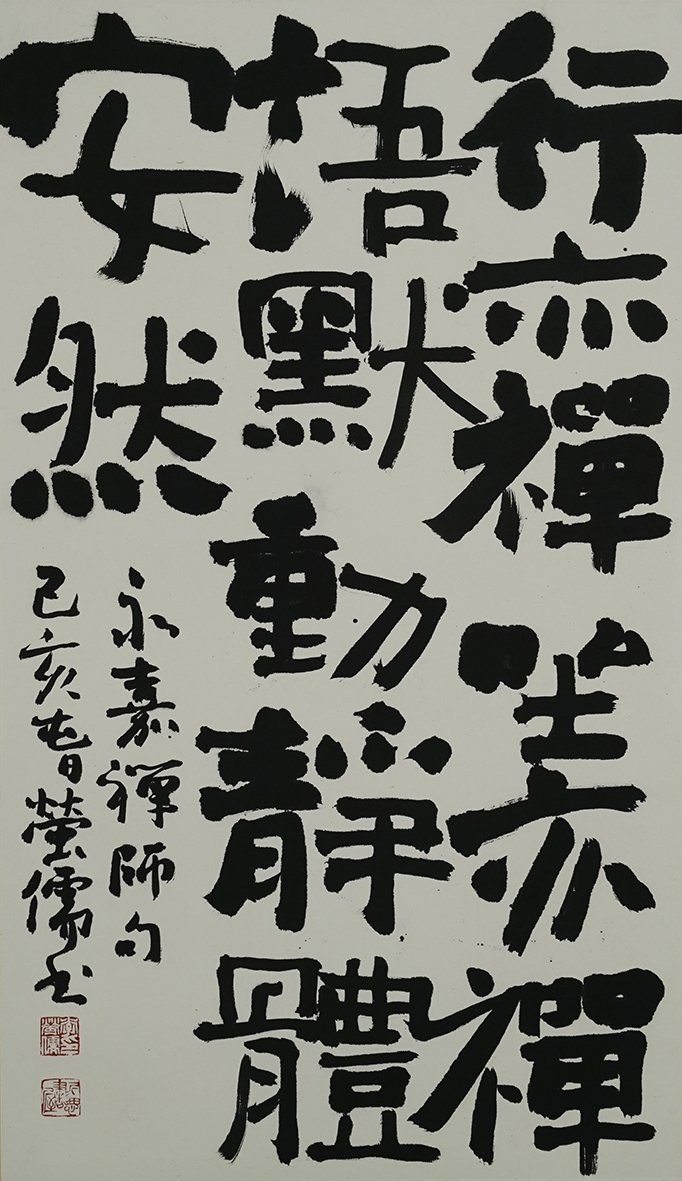 行亦禪坐亦禪
語默動靜體
安然
永嘉禪師句
己亥春瑩儒书